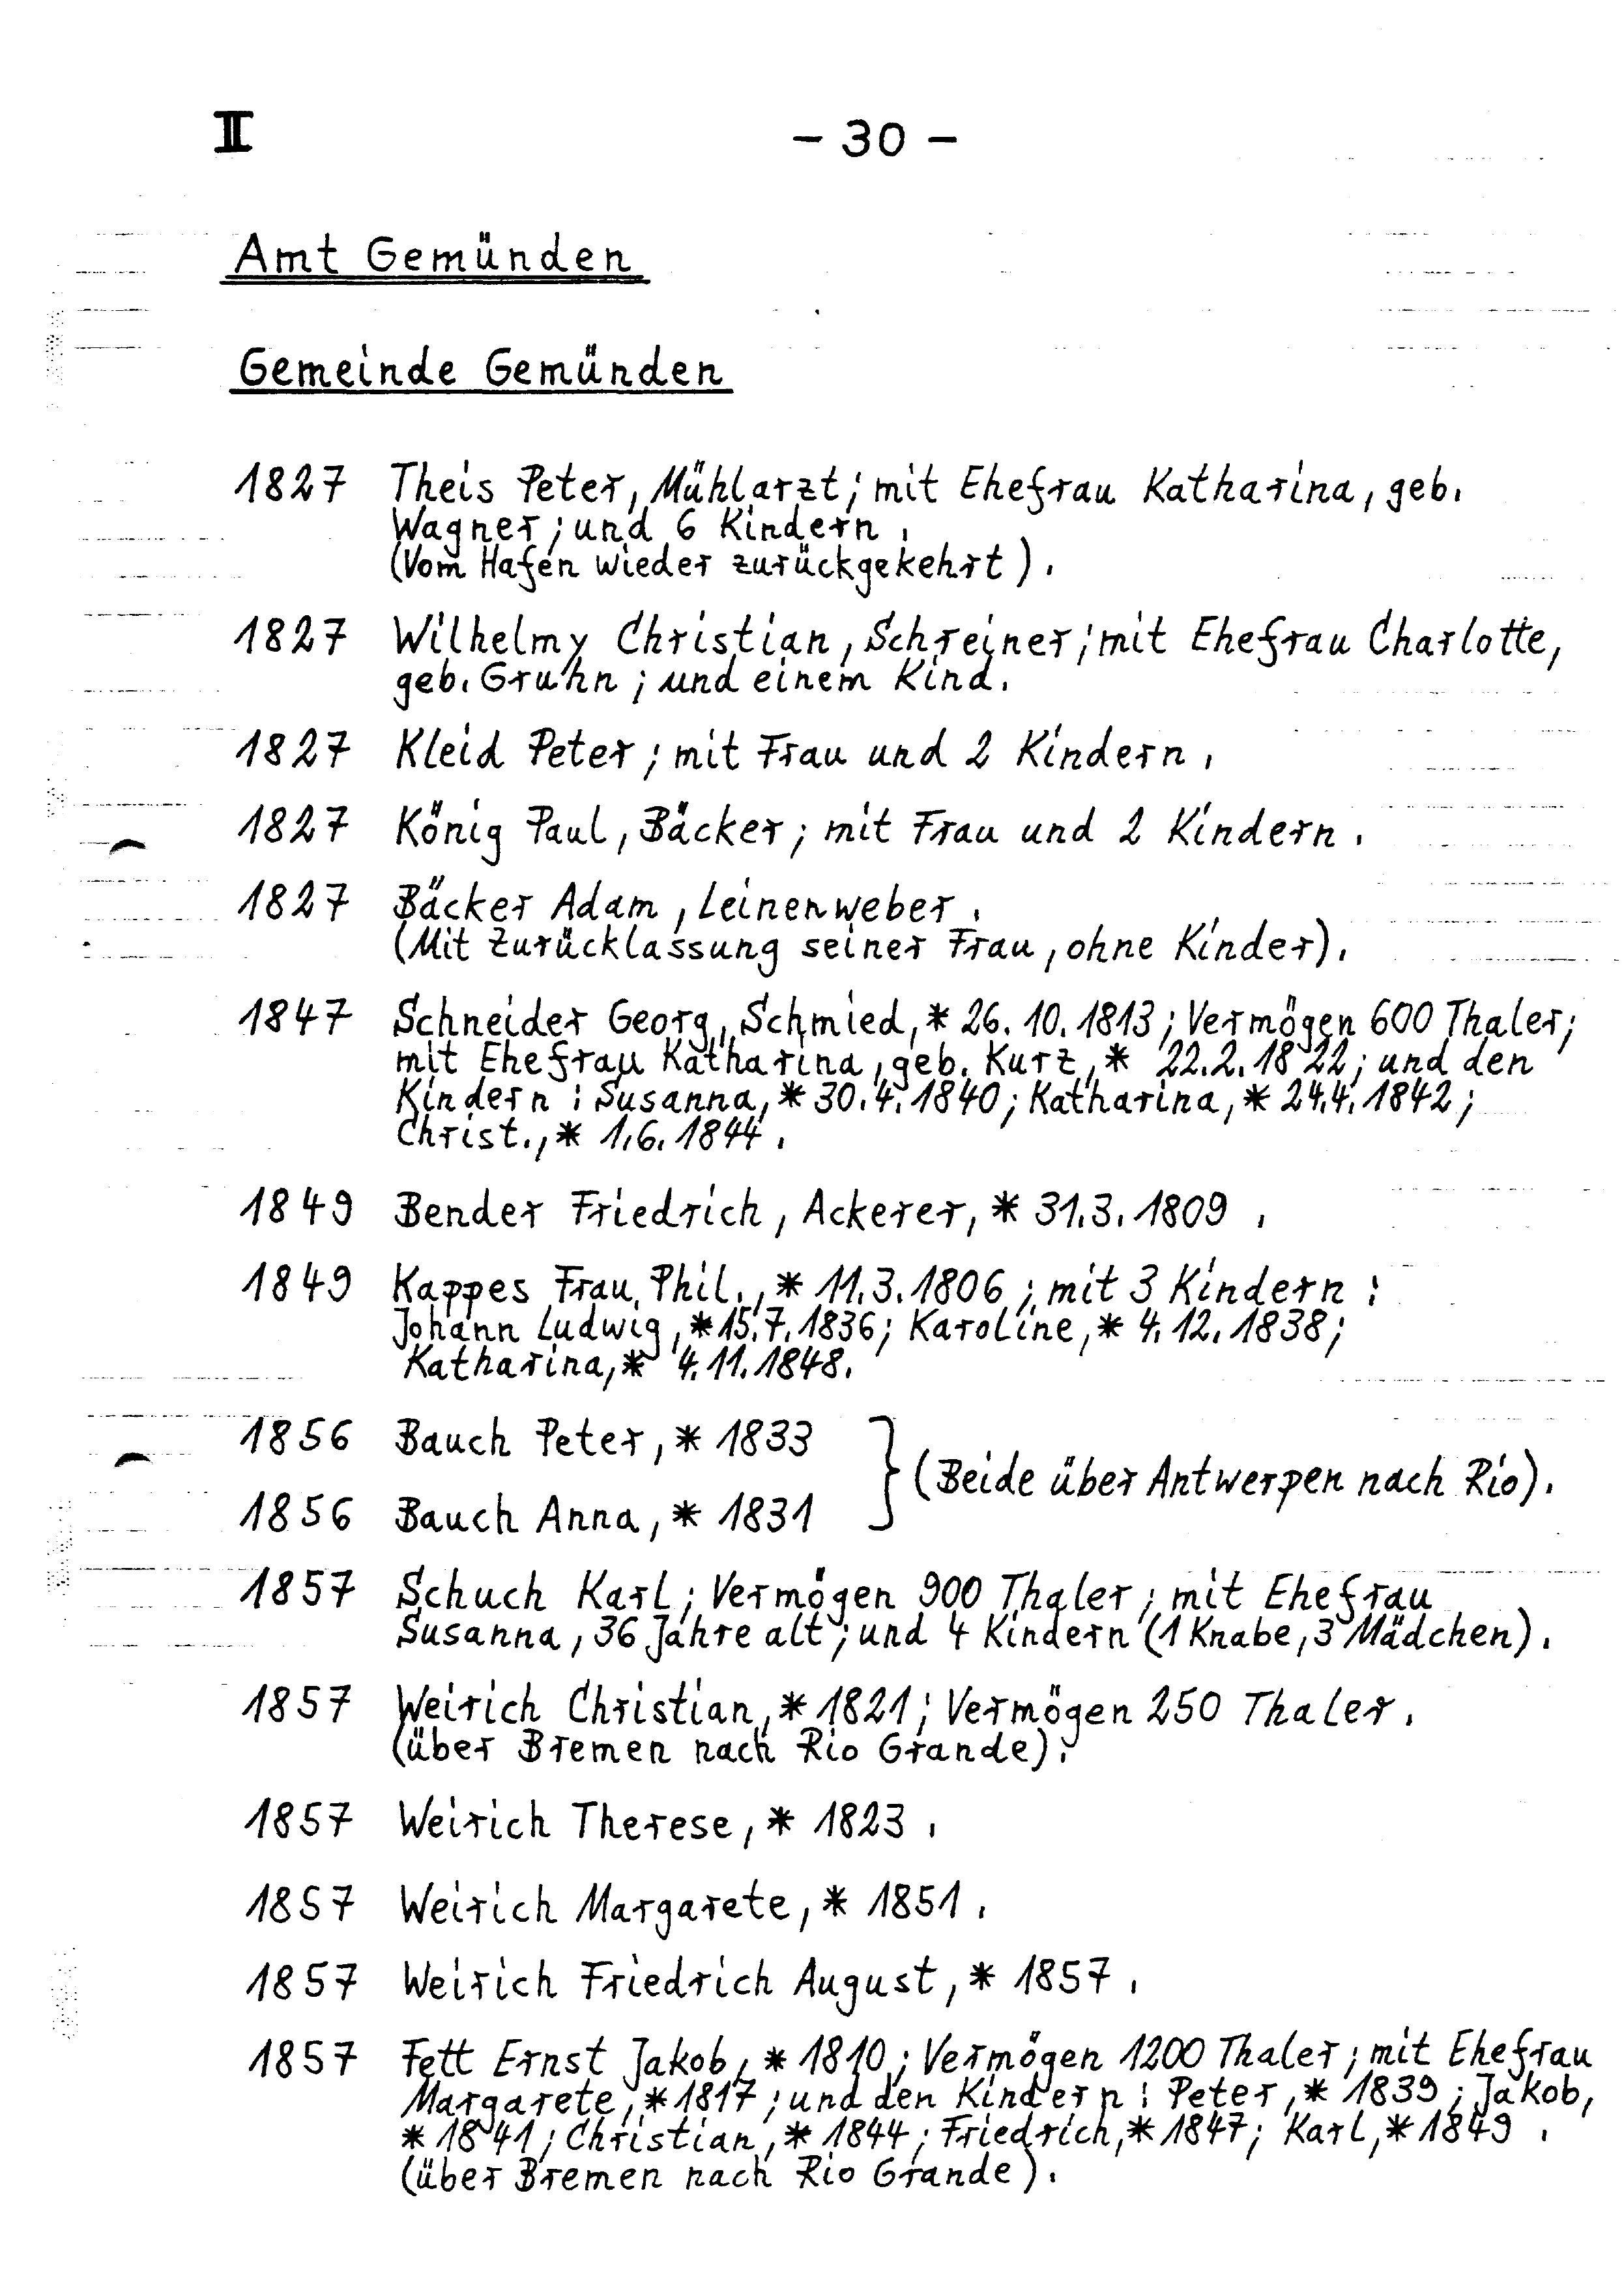 II
- 30 -
Amt Gemünden
Gemeinde Gemünden
1827 Theis Peter, Mühlarzt; mit Ehefrau Katharina, geb.
Wagner; und 6 Kindern.
(Vom Hafen wieder zurückgekehrt).
1827 Wilhelmy Christian, Schreiner; mit Ehefrau Charlotte,
geb. Gruhn; und einem Kind.
1827 Kleid Peter; mit Frau und 2 Kindern.
1827 König Paul, Bäcker; mit Frau und 2 Kindern.
1827 Bäcker Adam, Leinenweber.
(Mit Zurücklassung seiner Frau, ohne Kinder).
1847 Schneider Georg, Schmied, * 26.10.1813; Vermögen 600 Thaler;
mit Ehefrau Katharina, geb. Kurz, * 22.2.1822; und den
Kindern: Susanna, * 30.4.1840; Katharina, * 24.4.1842;
Christ., * 1.6.1844.
1849 Bender Friedrich, Ackerer, * 31.3.1809.
1849 Kappes Frau Phil., * 11.3.1806; mit 3 Kindern:
Johann Ludwig, * 15.7.1836; Karoline, * 4.12.1838;
Katharina, * 4.11.1848.
1856 Bauch Peter, * 1833
} (Beide über Antwerpen nach Rio).
1856 Bauch Anna, * 1831
1857 Schuch Karl; Vermögen 900 Thaler; mit Ehefrau
Susanna, 36 Jahre alt; und 4 Kindern (1 Knabe, 3 Mädchen).
1857 Weirich Christian, * 1821; Vermögen 250 Thaler.
(über Bremen nach Rio Grande).
1857 Weirich Therese, * 1823.
1857 Weirich Margarete, * 1851.
1857 Weirich Friedrich August, * 1857.
1857 Fett Ernst Jakob, * 1810; Vermögen 1200 Thaler; mit Ehefrau
Margarete, * 1817; und den Kindern: Peter, * 1839; Jakob,
* 1841; Christian, * 1844; Friedrich, * 1847; Karl, * 1849.
(über Bremen nach Rio Grande).